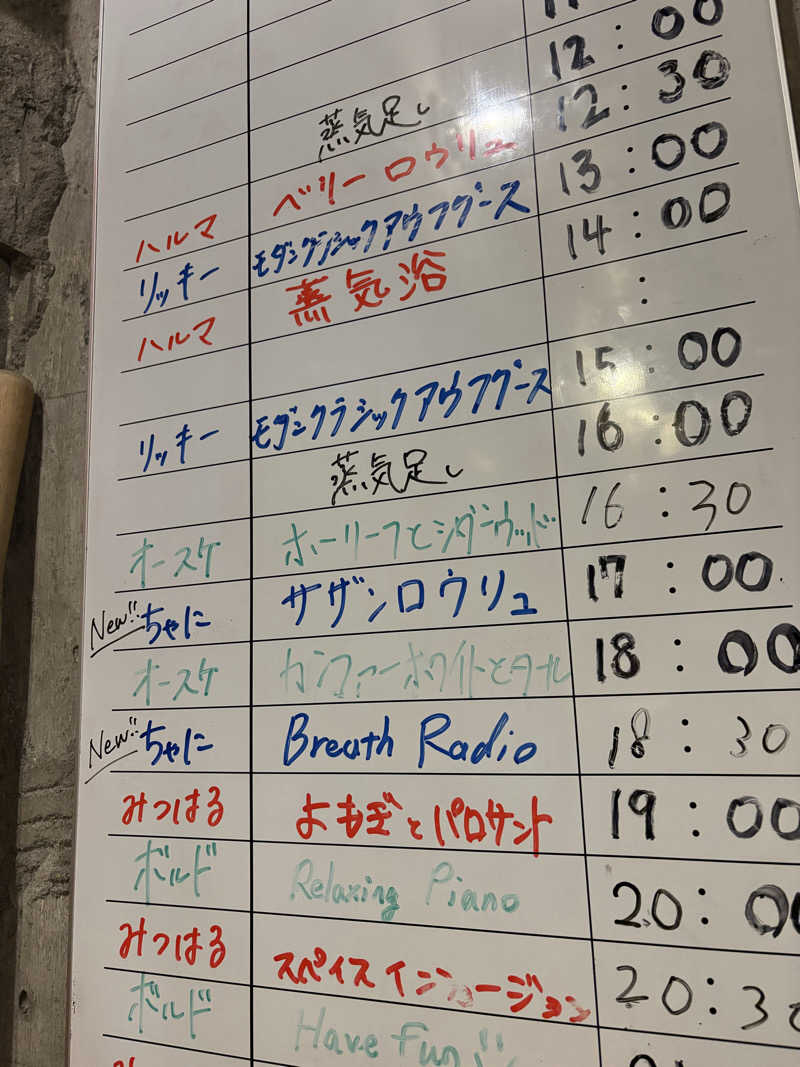 蒸気足し 12:00
ハルマ ベリーロウリュ 12:30
リッキー モダンクラシックアウフグース 13:00
ハルマ 蒸気浴 14:00
:
リッキー モダンクラシックアウフグース 15:00
蒸気足し 16:00
オースケ ホーリーフとシダーウッド 16:30
New!! ちゃに サザンロウリュ 17:00
オースケ カンファーホワイトとタール 18:00
New!! ちゃに Breath Radio 18:30
みつはる よもぎとパロサント 19:00
ボルド Relaxing Piano 20:00
みつはる スペイス 20:30
ボルド Have fun!!